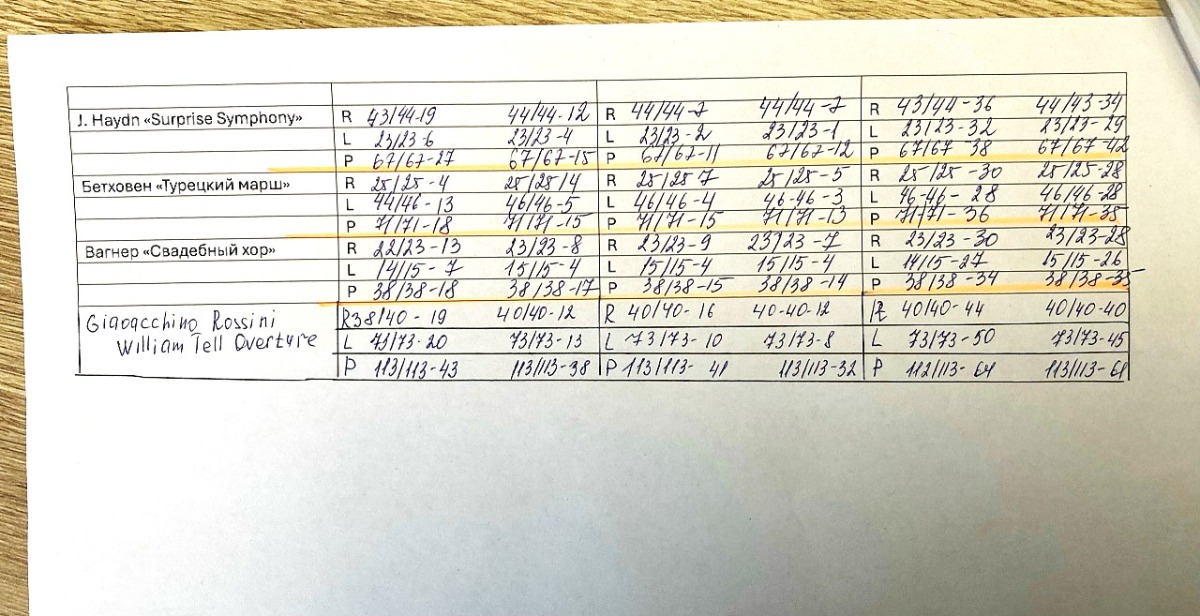 J. Haydn «Surprise Symphony» R 43/44-19 44/44-12 R 44/44-7 44/44-7 R 43/44-36 44/43-34
L 23/23-6 23/23-4 L 23/23-2 23/23-1 L 23/23-32 23/23-29
P 67/67-27 67/67-15 P 67/67-11 67/67-12 P 67/67-38 67/67-42
Бетховен «Турецкий марш» R 25/25-4 25/25/4 R 25/25 7 25/25-5 R 25/25-30 25/25-28
L 44/46-13 46/46-5 L 46/46-4 46-46-3 L 46-46- 28 46/46-28
P 71/71-18 71/71-15 P 71/71-15 71/71-13 P 71/71-36 71/71-35
Вагнер «Свадебный хор» R 22/23-13 23/23-8 R 23/23-9 23/23-7 R 23/23-30 23/23-28
L 14/15-7 15/15-4 L 15/15-4 15/15-4 L 14/15-27 15/15-26
P 38/38-18 38/38-17 P 38/38-15 38/38-14 P 38/38-34 38/38-35
Gioacchino Rossini R38/40-19 40/40-12 R 40/40-16 40-40-12 R 40/40-44 40/40-40
William Tell Overture L 73/73-20 73/73-13 L 73/73-10 73/73-8 L 73/73-50 73/73-45
P 113/113-43 113/113-38 P 113/113-41 113/113-32 P 112/113-64 113/113-61